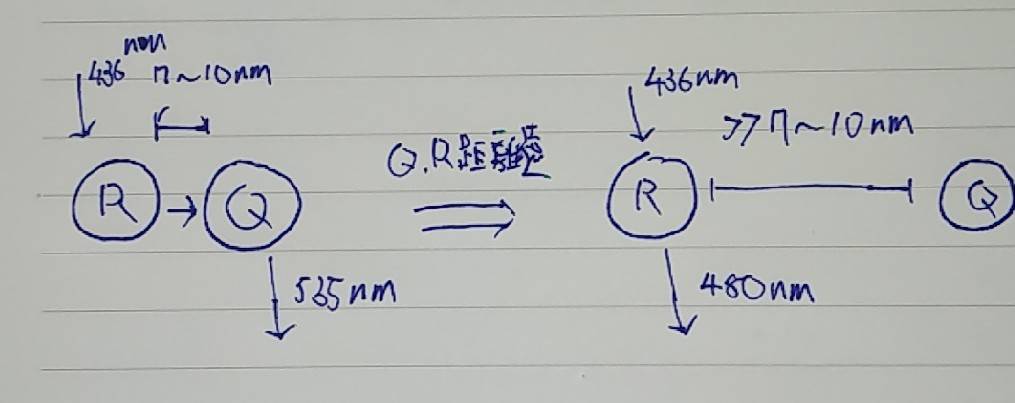 436 nm
7~10nm
R
Q
535nm
Q.R距離遠
436nm
>>7~10nm
R
Q
480nm